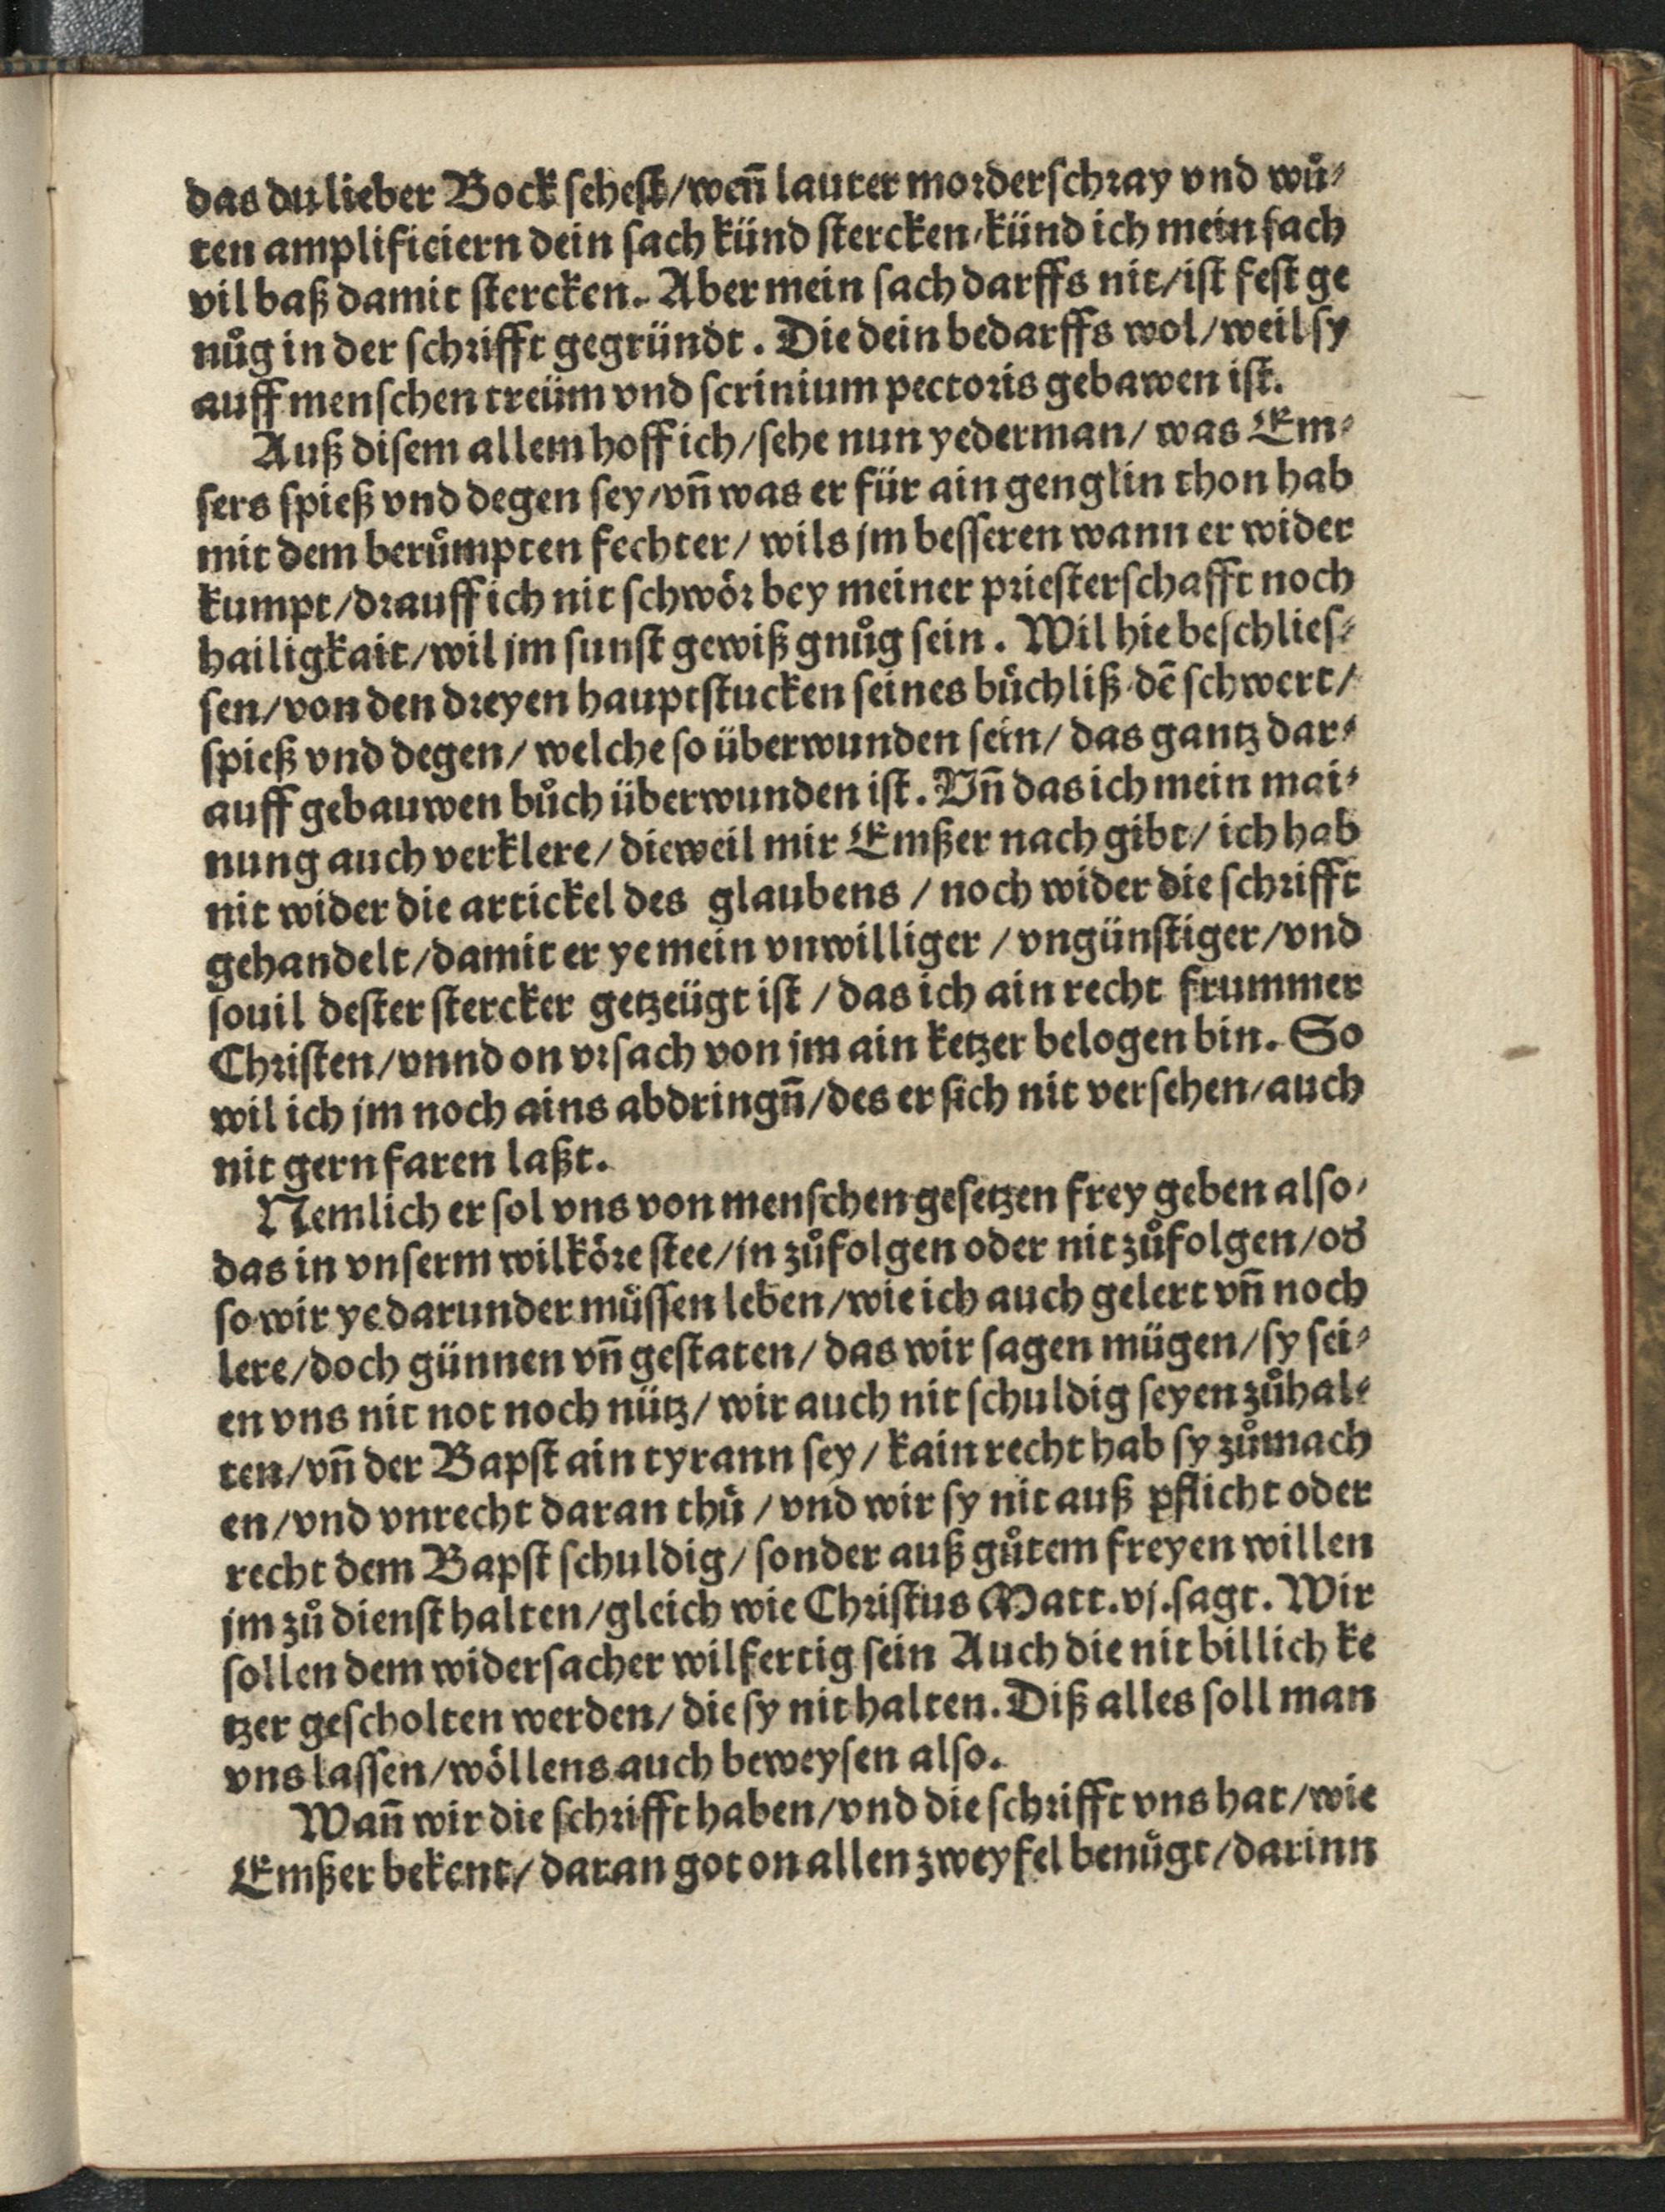 das du lieber Bock sehest/wen̄ lauter morderschray vnd wů⸗
ten amplificiern dein sach künd stercken/künd ich mein sach
vil baß damit stercken. Aber mein sach darffs nit/ist fest ge
nůg in der schrifft gegründt. Die dein bedarffs wol/weil sy
auff menschen treüm vnd scrinium pectoris gebawen ist.
Auß disem allem hoff ich/sehe nun yederman/ was Em⸗
sers spieß vnd degen sey/vn̄ was er für ain genglin thon hab
mit dem berůmpten fechter/ wils jm besseren wann er wider
kumpt/drauff ich nit schwoͤr bey meiner priesterschafft noch
hailigkait/wil jm sunst gewiß gnůg sein. Wil hie beschlies⸗
sen/von den dreyen hauptstucken seines buͤchliß dē schwert/
spieß vnd degen/ welche so überwunden sein/ das gantz dar⸗
auff gebauwen bůch überwunden ist. Vn̄ das ich mein mai⸗
nung auch verklere/ dieweil mir Emßer nach gibt/ ich hab
nit wider die artickel des glaubens / noch wider die schrifft
gehandelt/damit er ye mein vnwilliger / vngünstiger/vnd
souil dester stercker getzeügt ist / das ich ain recht frummer
Christen/vnnd on vrsach von jm ain ketzer belogen bin. So
wil ich jm noch ains abdringn̄/des er sich nit versehen/auch
nit gern faren laßt.
Nemlich er sol vns von menschen gesetzen frey geben also/
das in vnserm wilkoͤre stee/jn zůfolgen oder nit zůfolgen/od̓
so wir ye darunder muͤssen leben/wie ich auch gelert vn̄ noch
lere/doch günnen vn̄ gestaten/ das wir sagen mügen/sy sei⸗
en vns nit not noch nütz/ wir auch nit schuldig seyen zůhal⸗
ten/vn̄ der Bapst ain tyrann sey/ kain recht hab sy zůmach
en/vnd vnrecht daran thuͤ / vnd wir sy nit auß pflicht oder
recht dem Bapst schuldig/ sonder auß gůtem freyen willen
jm zů dienst halten/gleich wie Christus Matt.vj.sagt. Wir
sollen dem widersacher wilfertig sein Auch die nit billich ke
tzer gescholten werden/ die sy nit halten. Diß alles soll man
vns lassen/woͤllens auch beweysen also.
Wan̄ wir die schrifft haben/vnd die schrifft vns hat/wie
Emßer bekent/ daran got on allen zweyfel benuͤgt/darinn